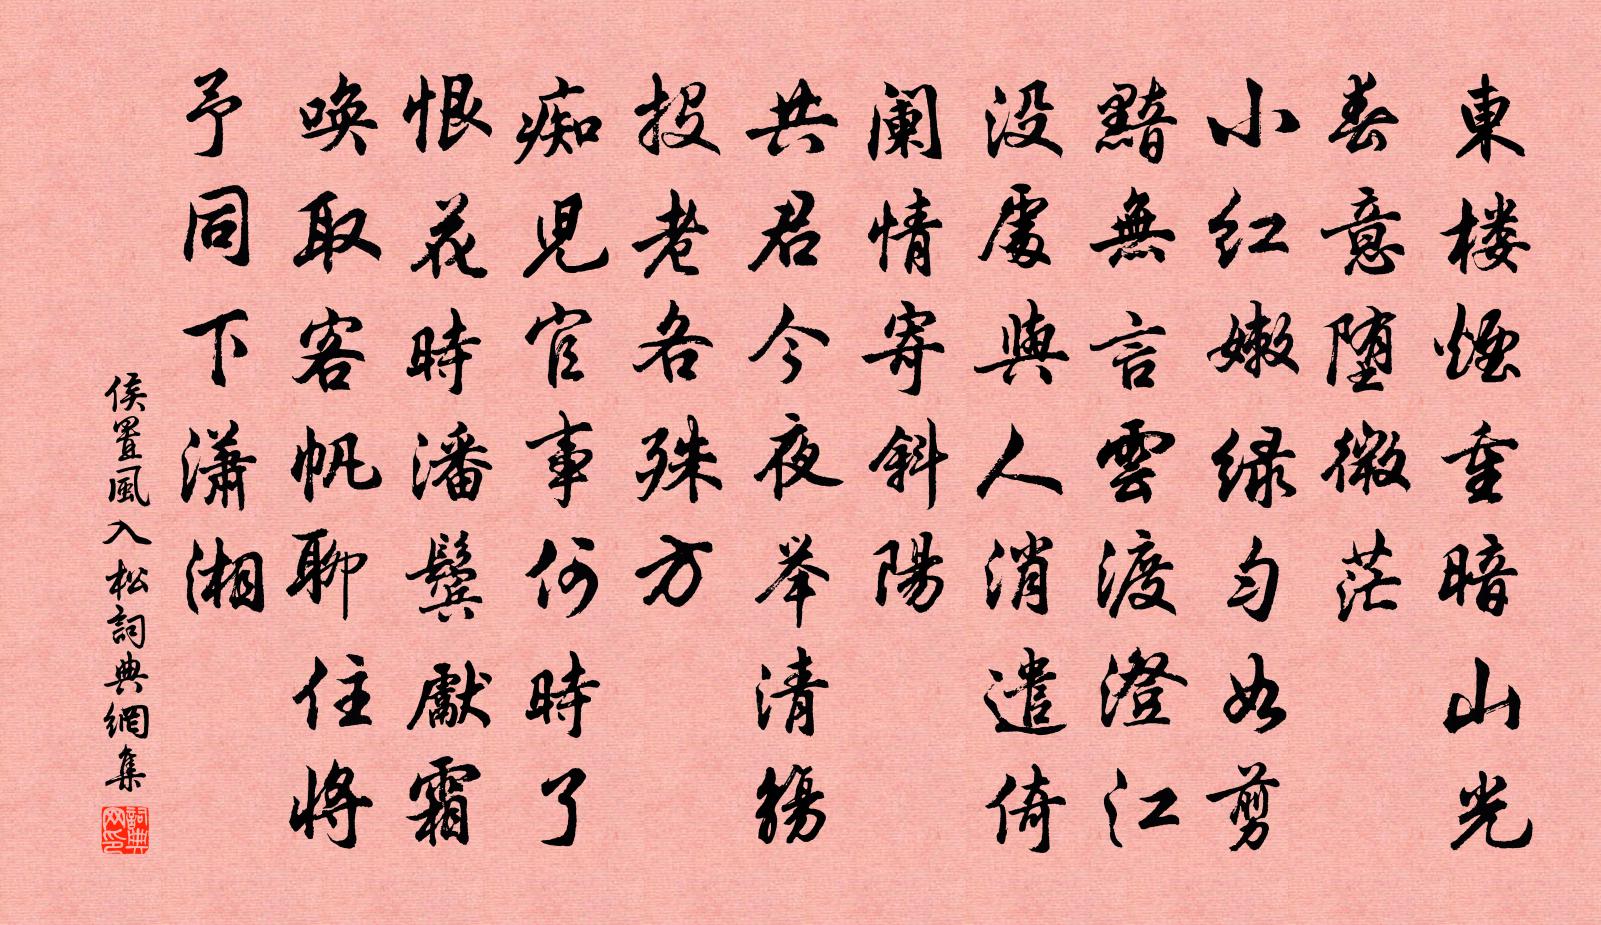 東楼煙重暗山光
春意堕微茫
小红嫩绿匀如剪
黯無言雲渡澄江
没處與人消遣倚
阑情寄斜陽
共君今夜举清觴
投老各殊方
痴児官事何時了
恨花時潘鬓獻霜
唤取客帆聊住将
予同下潇湘
侯置風入松詞典網集
詞典网印